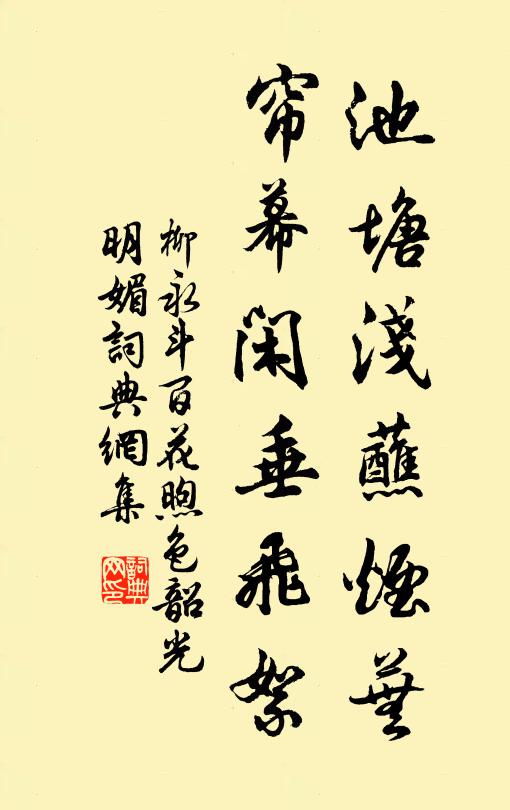 池塘淺蘸煙蕪
帘幕閑垂飛絮
柳永斗百花煦色韶光
明媚詞典網集
詞典
网印